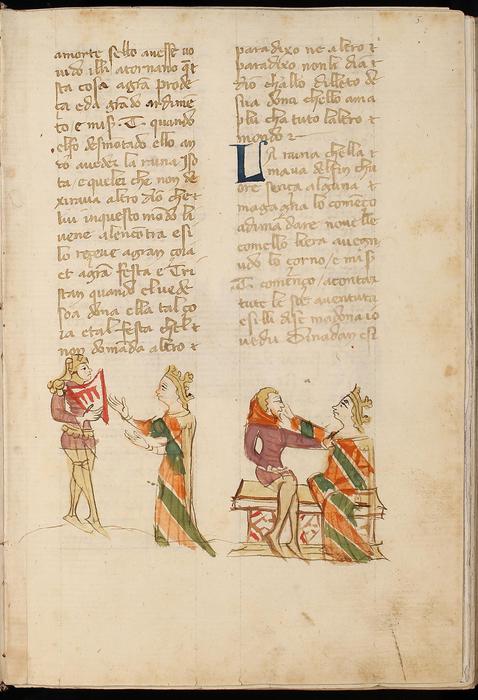 amorte sello auesse uo
uido illi atornano q̄e
sta cosa agrā prode
ça eda grādo ardime
to / e mis̄. T. quando
elfo desmotado ello an
dò aueder la raina Iso
ta / e quelei che non de
xiraua altro dio che
lui inquesto modo li
uene alencōtra e si
lo receue agran çoia
et agrā festa e Tri
stan quando el uede
soa dona ella tal ço
ia etal festa chel
non domāda altro
paradixo ne altro
paradixo nonli dia
dio challo dilleto de
sua dona chello ama
plu cha tuto laltro
mondo
La raina chella
maua delfin chu
ore sença alguna
magagna lo começo
adimādare nouelle
comello liera auegn
udo lo corno / e mis̄
T. començo / acontar
tute le soe auenture
esilli dise madona io
uedu Dinadan esi